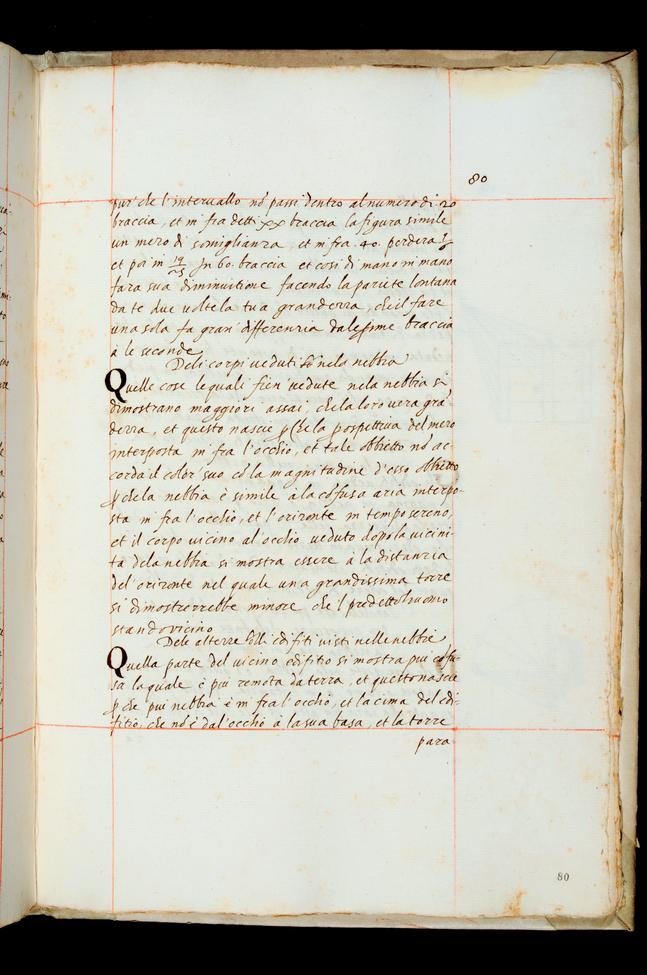 80
pur' che l'intervallo nō passi dentro al numero di 20
braccia, et in fra detti xx braccia la figura simile
un mero di somiglianza, et in fra .40. perdera
et poi in 19/ In 60. braccia et cosi di mano in mano
fara sua diminuitione facendo la pariete lontana
da te due volte la tua grandezza, che il fare
una sola fa gran' differenzia da le prime braccia
à le seconde
Deli corpi veduti nela nebbia
Quelle cose le quali fien' vedute nela nebbia si
dimostrano maggiori assai, che la loro vera grā
dezza, et questo nascie che la prospettiva del mezo
interposta in fra l'occhio, et tale obbietto nō ac-
corda il color' suo cō la magnitudine d'esso obbietto
che la nebbia è simile à la cōfusa aria interpo-
sta in fra l'occhio, et l'orizonte in tempo sereno,
et il corpo vicino al occhio veduto dopo la vicini-
ta dela nebbia si mostra essere à la distanzia
del'orizonte nel quale una grandissima torre
si dimostrerrebbe minore che 'l predetto huomo
stando vicino
Dele altezze delli edifiti visti nelle nebbie
Quella parte del vicino edifitio si mostra piu cōfu-
sa la quale è piu remota da terra, et questo nascie
che piu nebbia è in fra l'occhio, et la cima del edi-
fitio, che nō è dal'occhio à la sua basa, et la torre
para
80